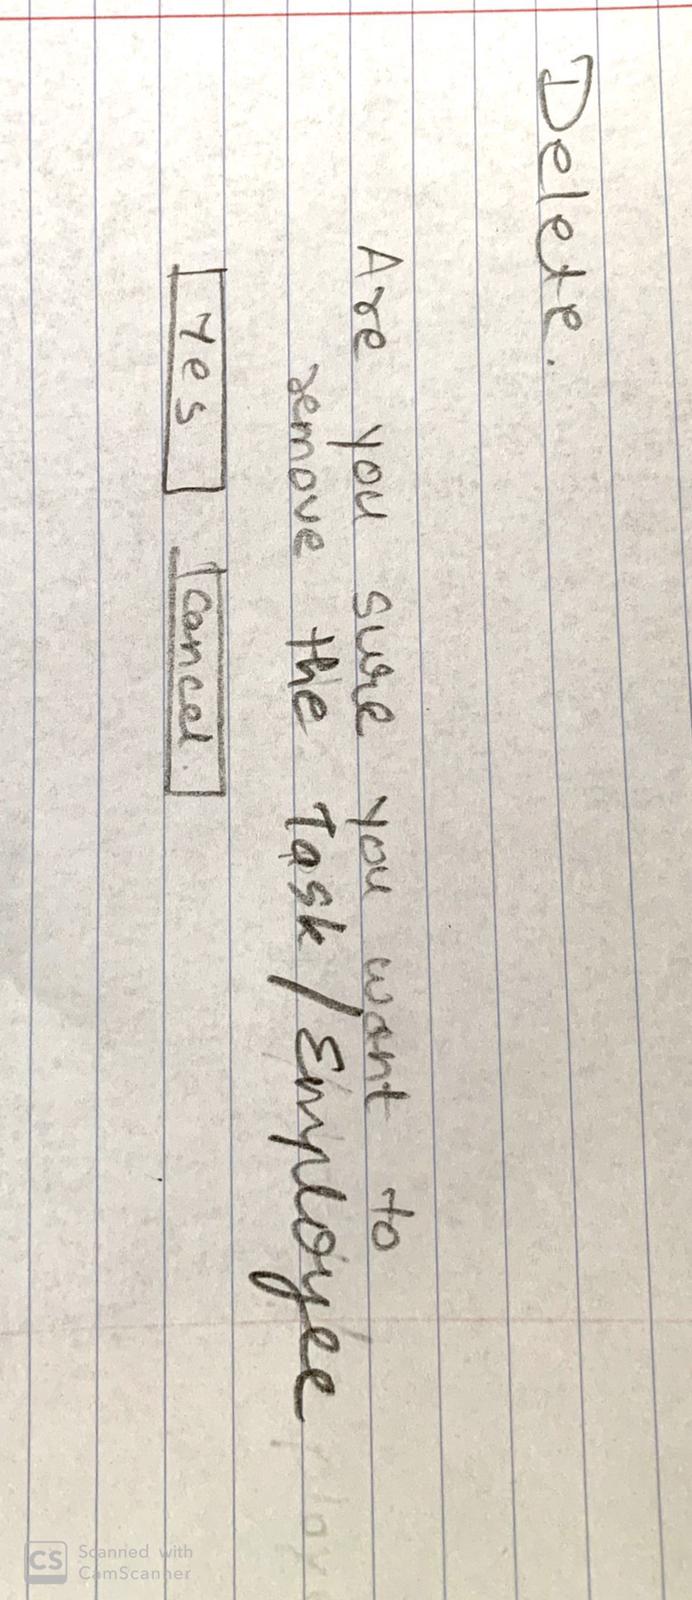 Delete.
Are you sure you want to
remove the Task/Employee
Yes Cancel.
CS Scanned with
CamScanner